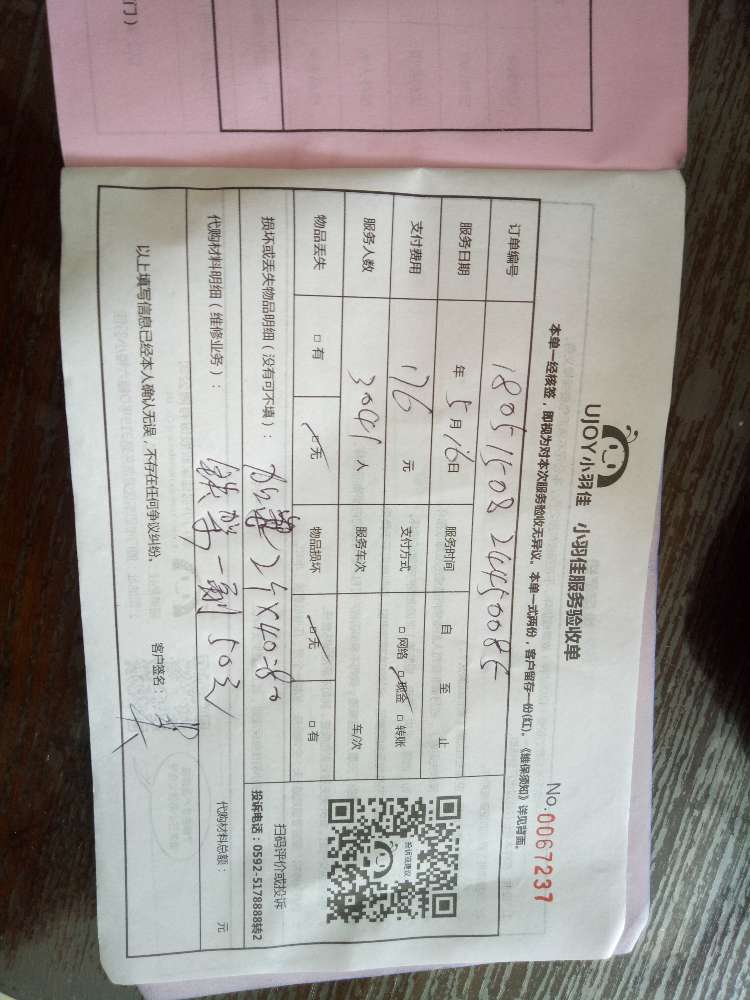 UJOY小羽佳 小羽佳服务验收单
No.0067237
本单一经核签，即视为对本次服务验收无异议。本单一式两份，客户留存一份(红)。《维保须知》详见背面。
订单编号 1805150824450085
服务日期 年 5 月 16 日 服务时间 自 至 止
支付费用 176 元 支付方式 □ 网络 □ 现金 □ 转账
服务人数 3041 人 服务车次 车/次
物品丢失 □ 有 □ 无 物品损坏 □ 无 □ 有
损坏或丢失物品明细（没有可不填）： 2个×40=80
代购材料明细（维修业务）： 一副 50元
代购材料总额： 元
以上填写信息已经本人确认无误，不存在任何争议纠纷。
客户签名：
投诉或建议
扫码评价或投诉
投诉电话：0592-5178888转2